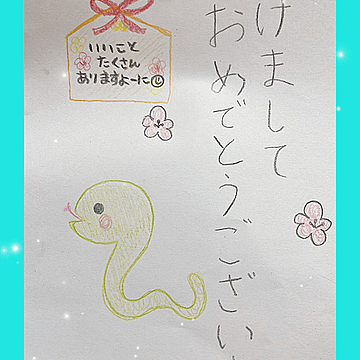 けまして
おめでとうござい
いいこと
たくさん
ありますよーに